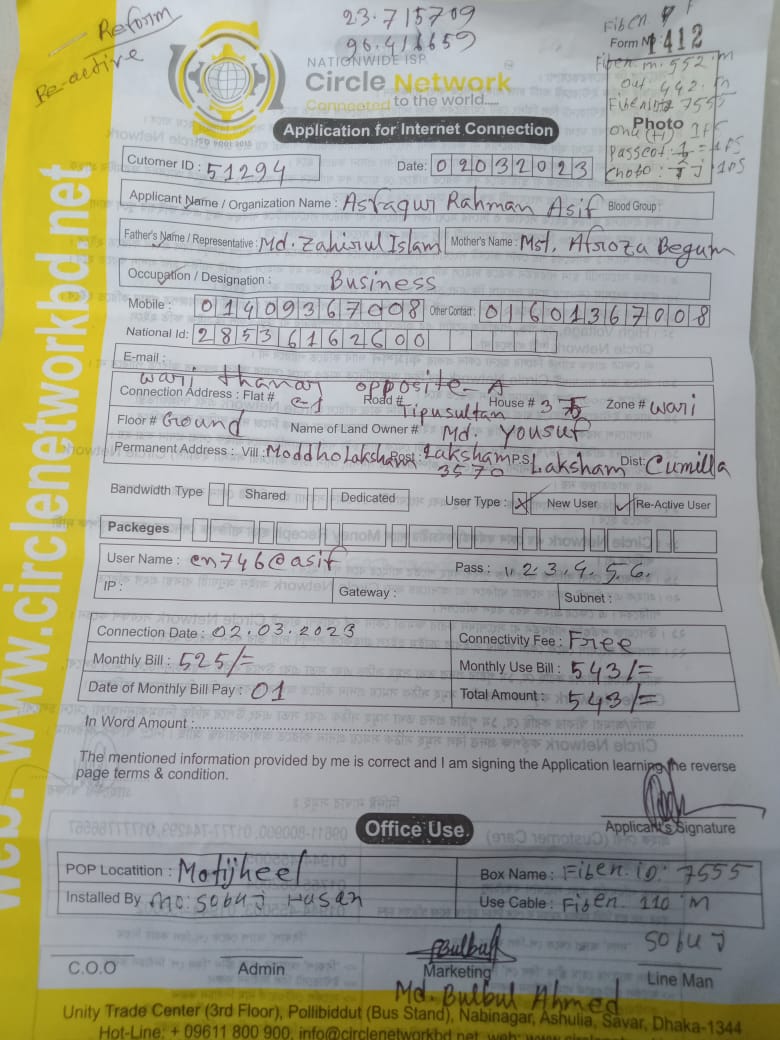 Reform
Re-active
23.715709
96.416659
Fiben
Form No 1412
NATIONWIDE ISP
Circle Network
Connected to the world....
ISO 9001 2015
Fiben m. 552.m
out 442.m
Fiben id 7555
Photo
onu (+) 1PS
Passcot:
Application for Internet Connection
Cutomer ID : 51294
Date: 02032023
Applicant Name / Organization Name : Asfaqur Rahman Asif Blood Group :
Father's Name / Representative : Md. Zahirul Islam Mother's Name : Mst. Afroza Begum
Occupation / Designation : Business
Mobile : 01409367008 Other Contact : 01601367008
National Id: 2853616260 0
E-mail :
wari thanar opposite-A
Connection Address : Flat # c-1 Road # Tipusultan House # 35 Zone # wari
Floor # Ground Name of Land Owner # Md. Yousuf
Permanent Address : Vill : Moddho Laksham Post : Laksham 3570 P.S. Laksham Dist: Cumilla
Bandwidth Type Shared Dedicated User Type : New User Re-Active User
Packeges
User Name : cn746@asif Pass : 1.2.3.4.5.6.
IP : Gateway : Subnet :
Connection Date : 02.03.2023 Connectivity Fee : Free
Monthly Bill : 525/= Monthly Use Bill : 543/=
Date of Monthly Bill Pay : 01 Total Amount : 543/=
In Word Amount :
The mentioned information provided by me is correct and I am signing the Application learning the reverse
page terms & condition.
Applicant's Signature
Office Use.
POP Locatition : Motijheel Box Name : Fiben.id: 7555
Installed By MD: Sobuj Hasan Use Cable : Fiben. 110 m
Bulbul
Sobuj
C.O.O Admin Marketing Line Man
Md. Bulbul Ahmed
Unity Trade Center (3rd Floor), Pollibiddut (Bus Stand), Nabinagar, Ashulia, Savar, Dhaka-1344
Hot-Line: + 09611 800 900, info@circlenetworkbd.net, web: www.circlenetworkbd.net
web: www.circlenetworkbd.net